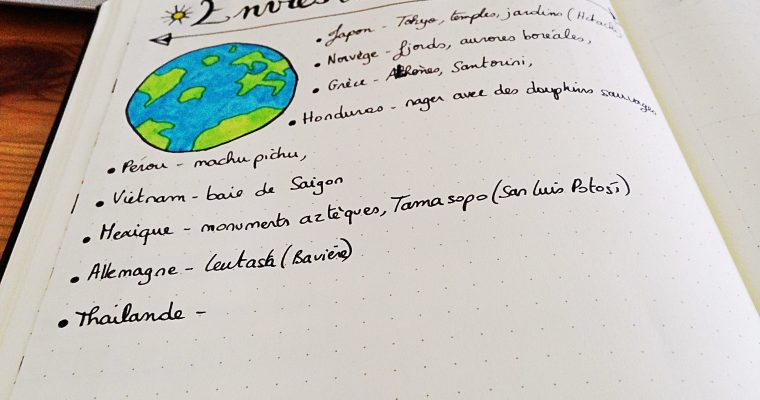 Envies
• Japon - Tokyo, temples, jardins (Hitachi)
• Norvège - fjords, aurores boréales,
• Grèce - Athènes, Santorini,
• Honduras - nager avec des dauphins sauvages
• Pérou - machu pichu,
• Vietnam - baie de Saigon
• Mexique - monuments aztèques, Tamasopo (San Luis Potosi)
• Allemagne - Leutash (Bavière)
• Thaïlande -